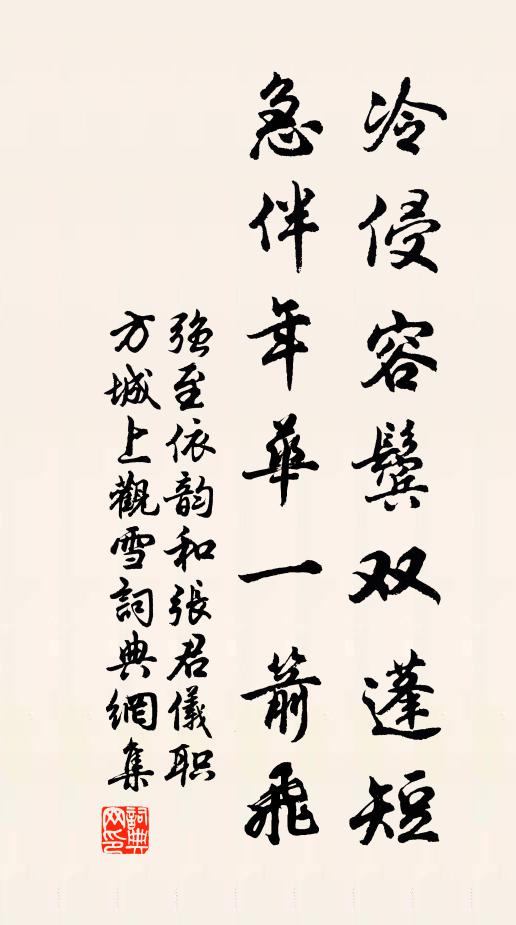 冷侵容鬓双蓬短
急伴年華一箭飛
强至依韵和張君儀职
方城上觀雪詞典網集
詞典
网印